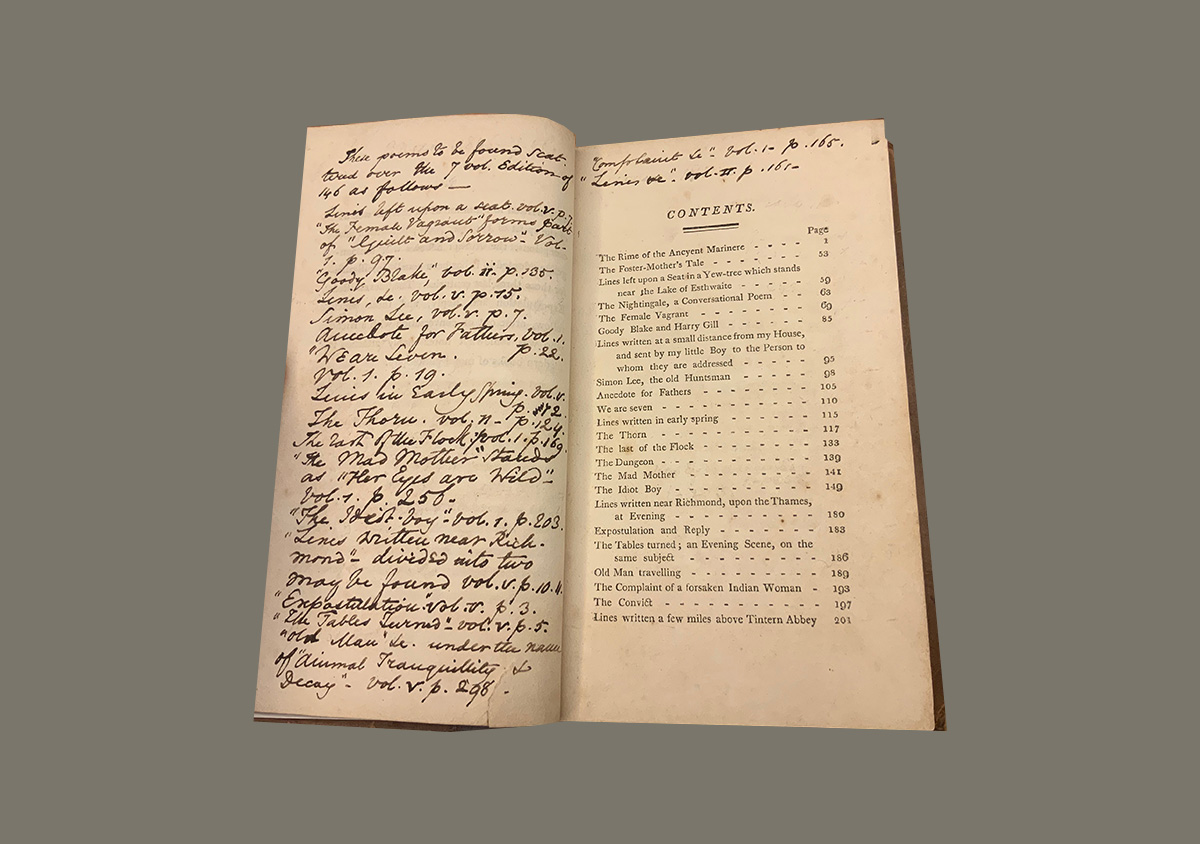 These poems to be found scat-
tered over the 7 vol. Edition of
146 as follows —
Lines left upon a seat. vol. v. p. 7.
"The Female Vagrant" forms part
of "Guilt and Sorrow" - Vol.
1. p. 97.
"Goody Blake," vol. II. p. 135.
Lines, &c. vol. v. p. 15.
Simon Lee, vol. v. p. 7.
Anecdote for Fathers, vol. 1.
p. 22.
"We are Seven.
Vol. 1. p. 19.
Lines in Early Spring. vol. v.
p. 12.
The Thorn. vol. II - p. 124.
The Last of the Flock: vol. 1. p. 169.
"The Mad Mother" stands
as "Her Eyes are Wild" -
vol. 1. p. 256 -
"The Idiot boy" - vol. 1. p. 203.
"Lines written near Rich-
mond" - divided into two
may be found vol. v. p. 10. 11.
"Expostulation" vol. v. p. 3.
"The Tables Turned" - vol. v. p. 5.
"Old Man" &c. under the name
of "Animal Tranquillity &
Decay" - vol. v. p. 298 -
"Complaint &c" - vol. 1 - p. 165.
"Lines &c - vol. II. p. 161 -
CONTENTS.
Page
The Rime of the Ancyent Marinere - - - - 1
The Foster-Mother's Tale - - - - - - - 53
Lines left upon a Seat in a Yew-tree which stands
near the Lake of Esthwaite - - - - - 59
The Nightingale, a Conversational Poem - - 63
The Female Vagrant - - - - - - - - 69
Goody Blake and Harry Gill - - - - - - 85
Lines written at a small distance from my House,
and sent by my little Boy to the Person to
whom they are addressed - - - - - 95
Simon Lee, the old Huntsman - - - - - 98
Anecdote for Fathers - - - - - - - - 105
We are seven - - - - - - - - - - 110
Lines written in early spring - - - - - - 115
The Thorn - - - - - - - - - - - 117
The last of the Flock - - - - - - - - 133
The Dungeon - - - - - - - - - - 139
The Mad Mother - - - - - - - - - 141
The Idiot Boy - - - - - - - - - - 149
Lines written near Richmond, upon the Thames,
at Evening - - - - - - - - - 180
Expostulation and Reply - - - - - - - 183
The Tables turned; an Evening Scene, on the
same subject - - - - - - - - 186
Old Man travelling - - - - - - - - 189
The Complaint of a forsaken Indian Woman - 193
The Convict - - - - - - - - - - 197
Lines written a few miles above Tintern Abbey 201